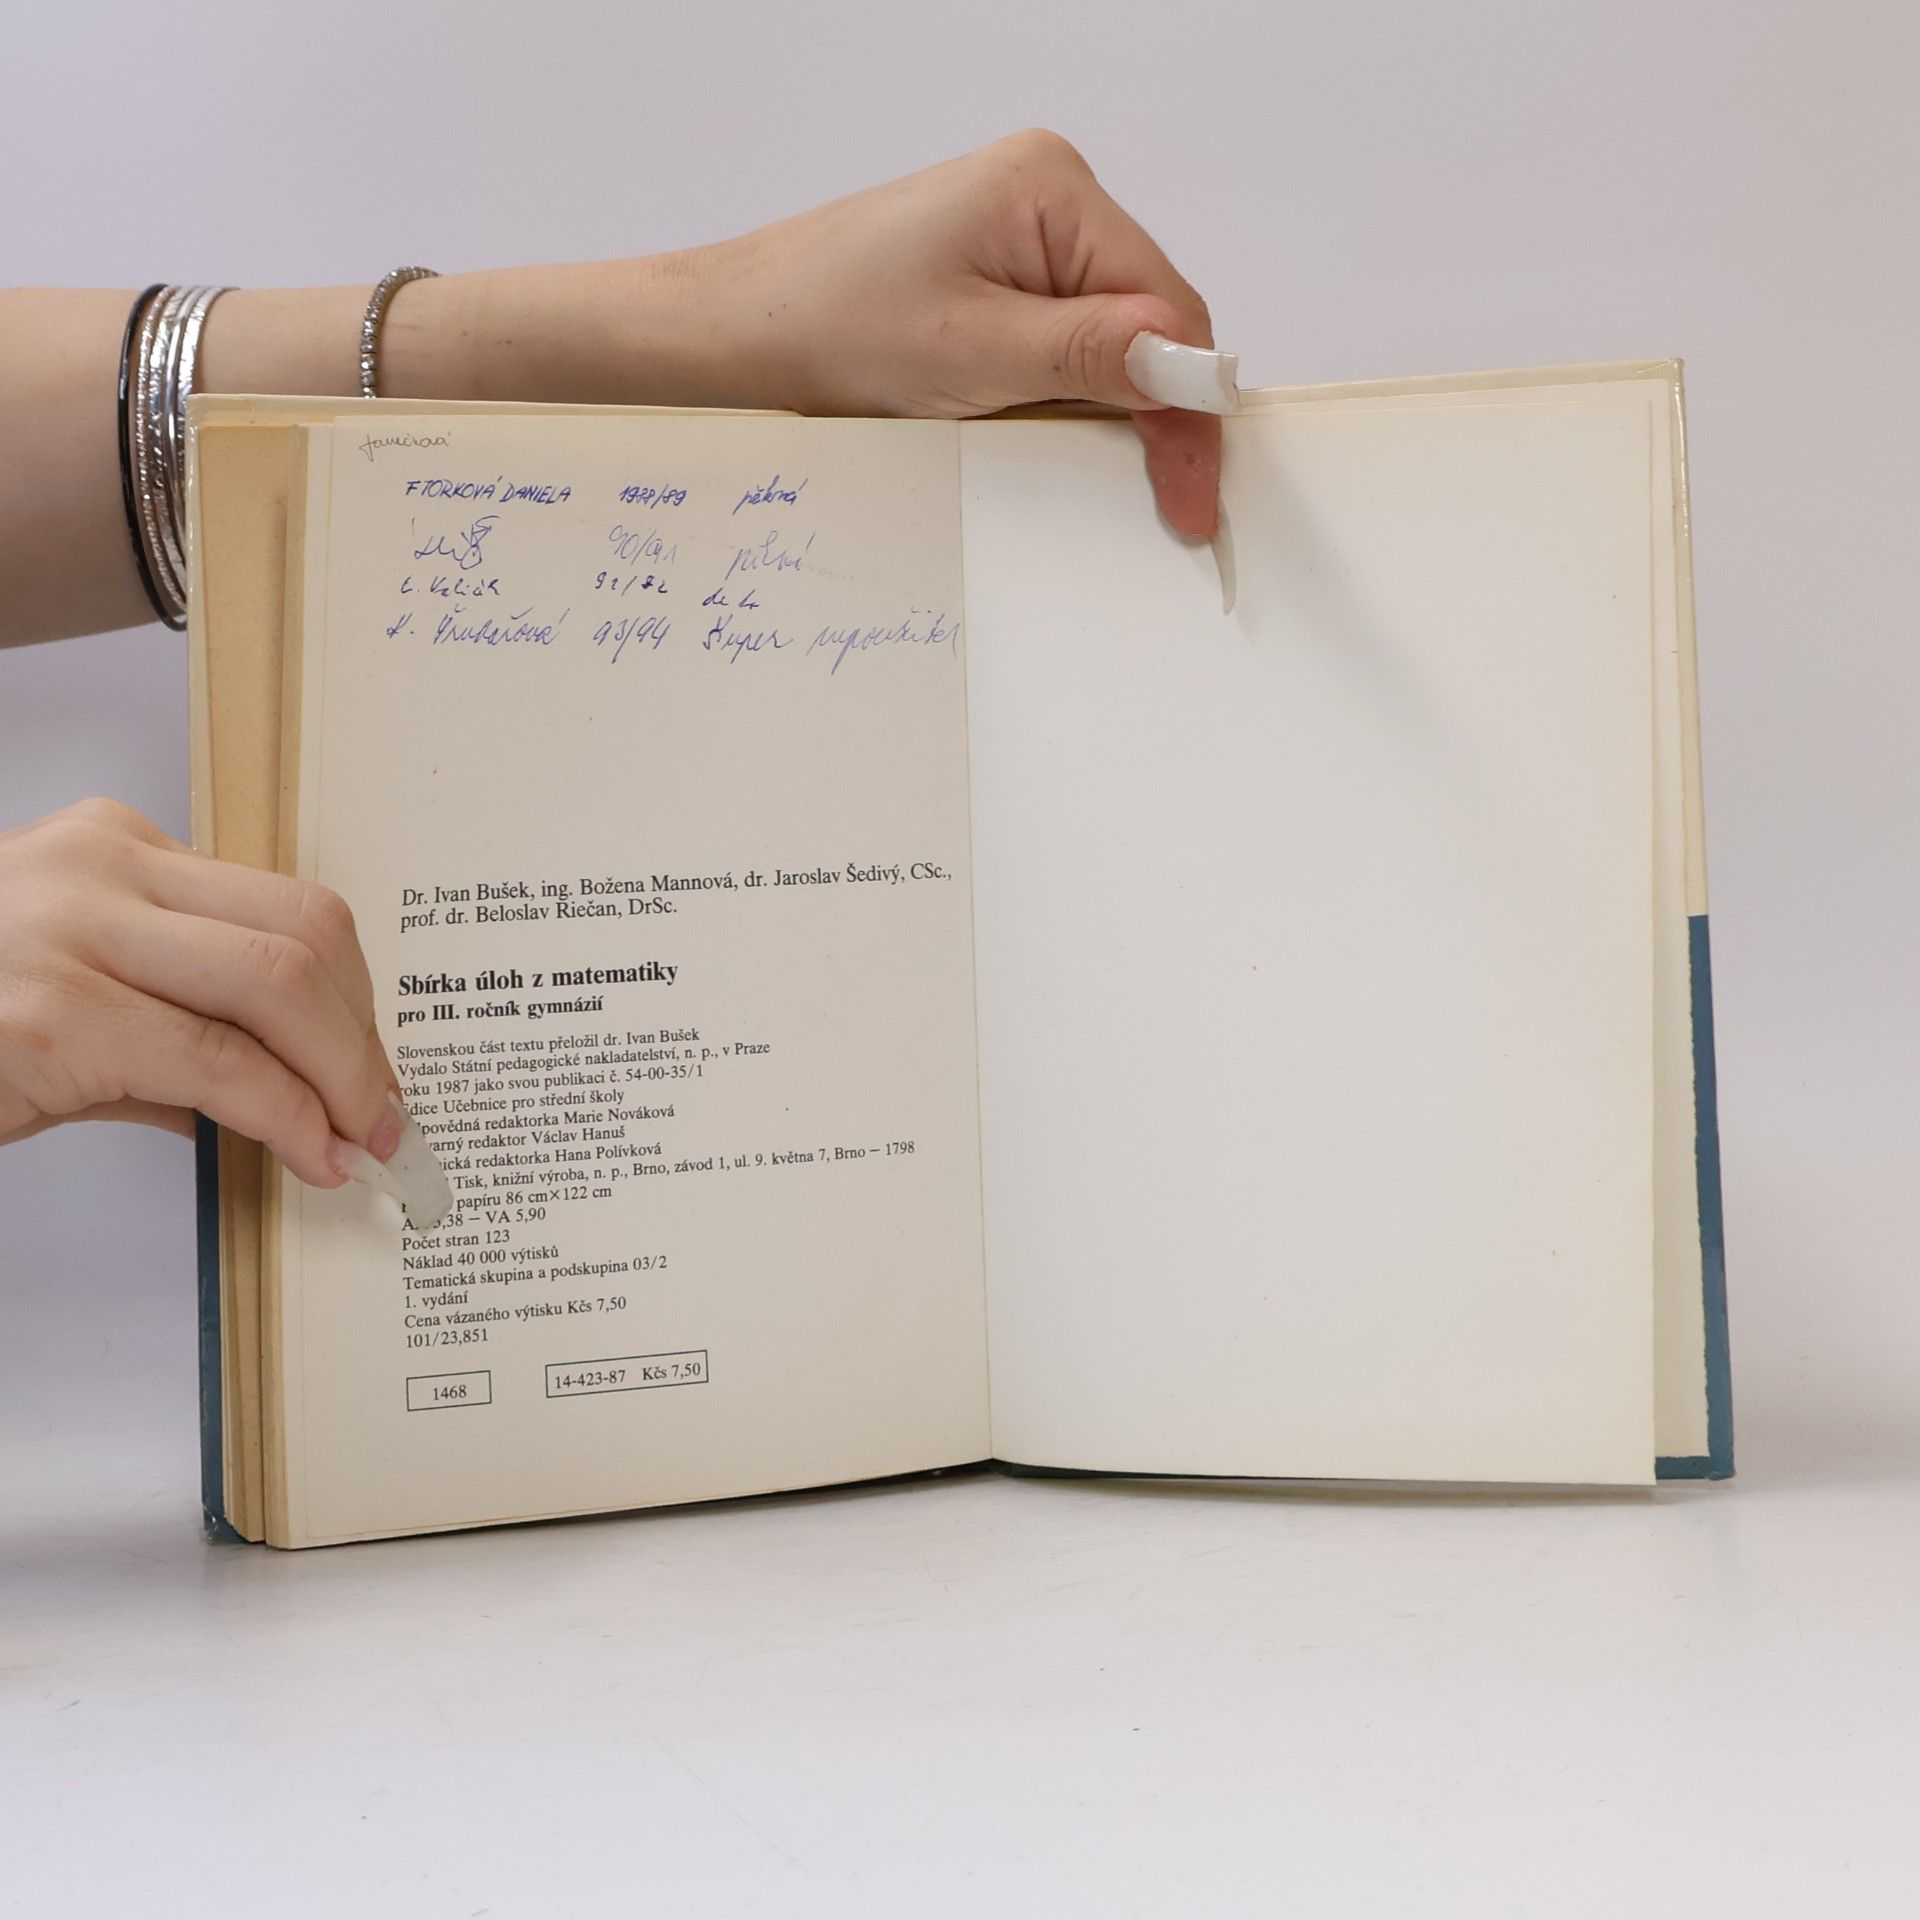 Janečková
FTORKOVÁ DANIELA 1988/89 pěkná
90/91
92/92 de to
93/94 Super
Dr. Ivan Bušek, ing. Božena Mannová, dr. Jaroslav Šedivý, CSc.,
prof. dr. Beloslav Riečan, DrSc.
Sbírka úloh z matematiky
pro III. ročník gymnázií
Slovenskou část textu přeložil dr. Ivan Bušek
Vydalo Státní pedagogické nakladatelství, n. p., v Praze
roku 1987 jako svou publikaci č. 54-00-35/1
Edice Učebnice pro střední školy
povědná redaktorka Marie Nováková
varný redaktor Václav Hanuš
ická redaktorka Hana Polívková
Tisk, knižní výroba, n. p., Brno, závod 1, ul. 9. května 7, Brno – 1798
papíru 86 cm×122 cm
,38 – VA 5,90
Počet stran 123
Náklad 40 000 výtisků
Tematická skupina a podskupina 03/2
1. vydání
Cena vázaného výtisku Kčs 7,50
101/23,851
1468 14-423-87 Kčs 7,50